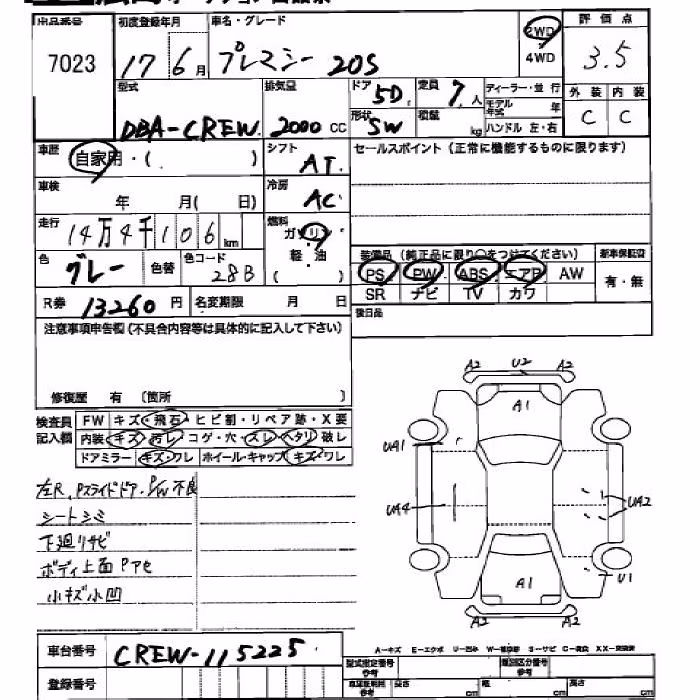 出品番号 初度登録年月 車名・グレード 2WD 評価点
7023 17 6月 プレマシー 20S 4WD 3.5
型式 排気量 ドア 5D 定員 7人 ディーラー・並行 外装 内装
DBA-CREW 2000cc 形状 SW 積量 kg モデル年式 年 C C
ハンドル 左・右
車歴 自家用・( ) シフト AT セールスポイント(正常に機能するものに限ります)
車検 年 月( 日) 冷房 AC
走行 14万4千106km 燃料 ガソリン
軽油
( )
装備品(純正品に限り○をつけてください) 新車保証書
色 グレー 色替 色コード 28B PS PW ABS エアB AW 有・無
SR ナビ TV カワ
R券 13260円 名変期限 月 日 後日品
注意事項申告欄(不具合内容等は具体的に記入して下さい)
修復歴 有 (箇所 )
検査員記入欄 FW キズ・飛石・ヒビ割・リペア跡・X要
内装 キズ・汚レ・コゲ・穴・スレ・ヘタリ・破レ
ドアミラー キズ・ワレ ホイール・キャップ キズ・ワレ
左R、Pスライドドア、P/W不良
シートシミ
下廻りサビ
ボディ上面
小キズ小凹
A2 U2 A2
A1
UA1
UA4 UA2
U1
A1
A2 A2
A-キズ E-エクボ U-凹み S-サビ C-腐食 XX-交換済
車台番号 CREW-115225
型式指定番号 参考 類別区分番号 参考
登録番号
参考 長さ cm 幅 cm 高さ cm